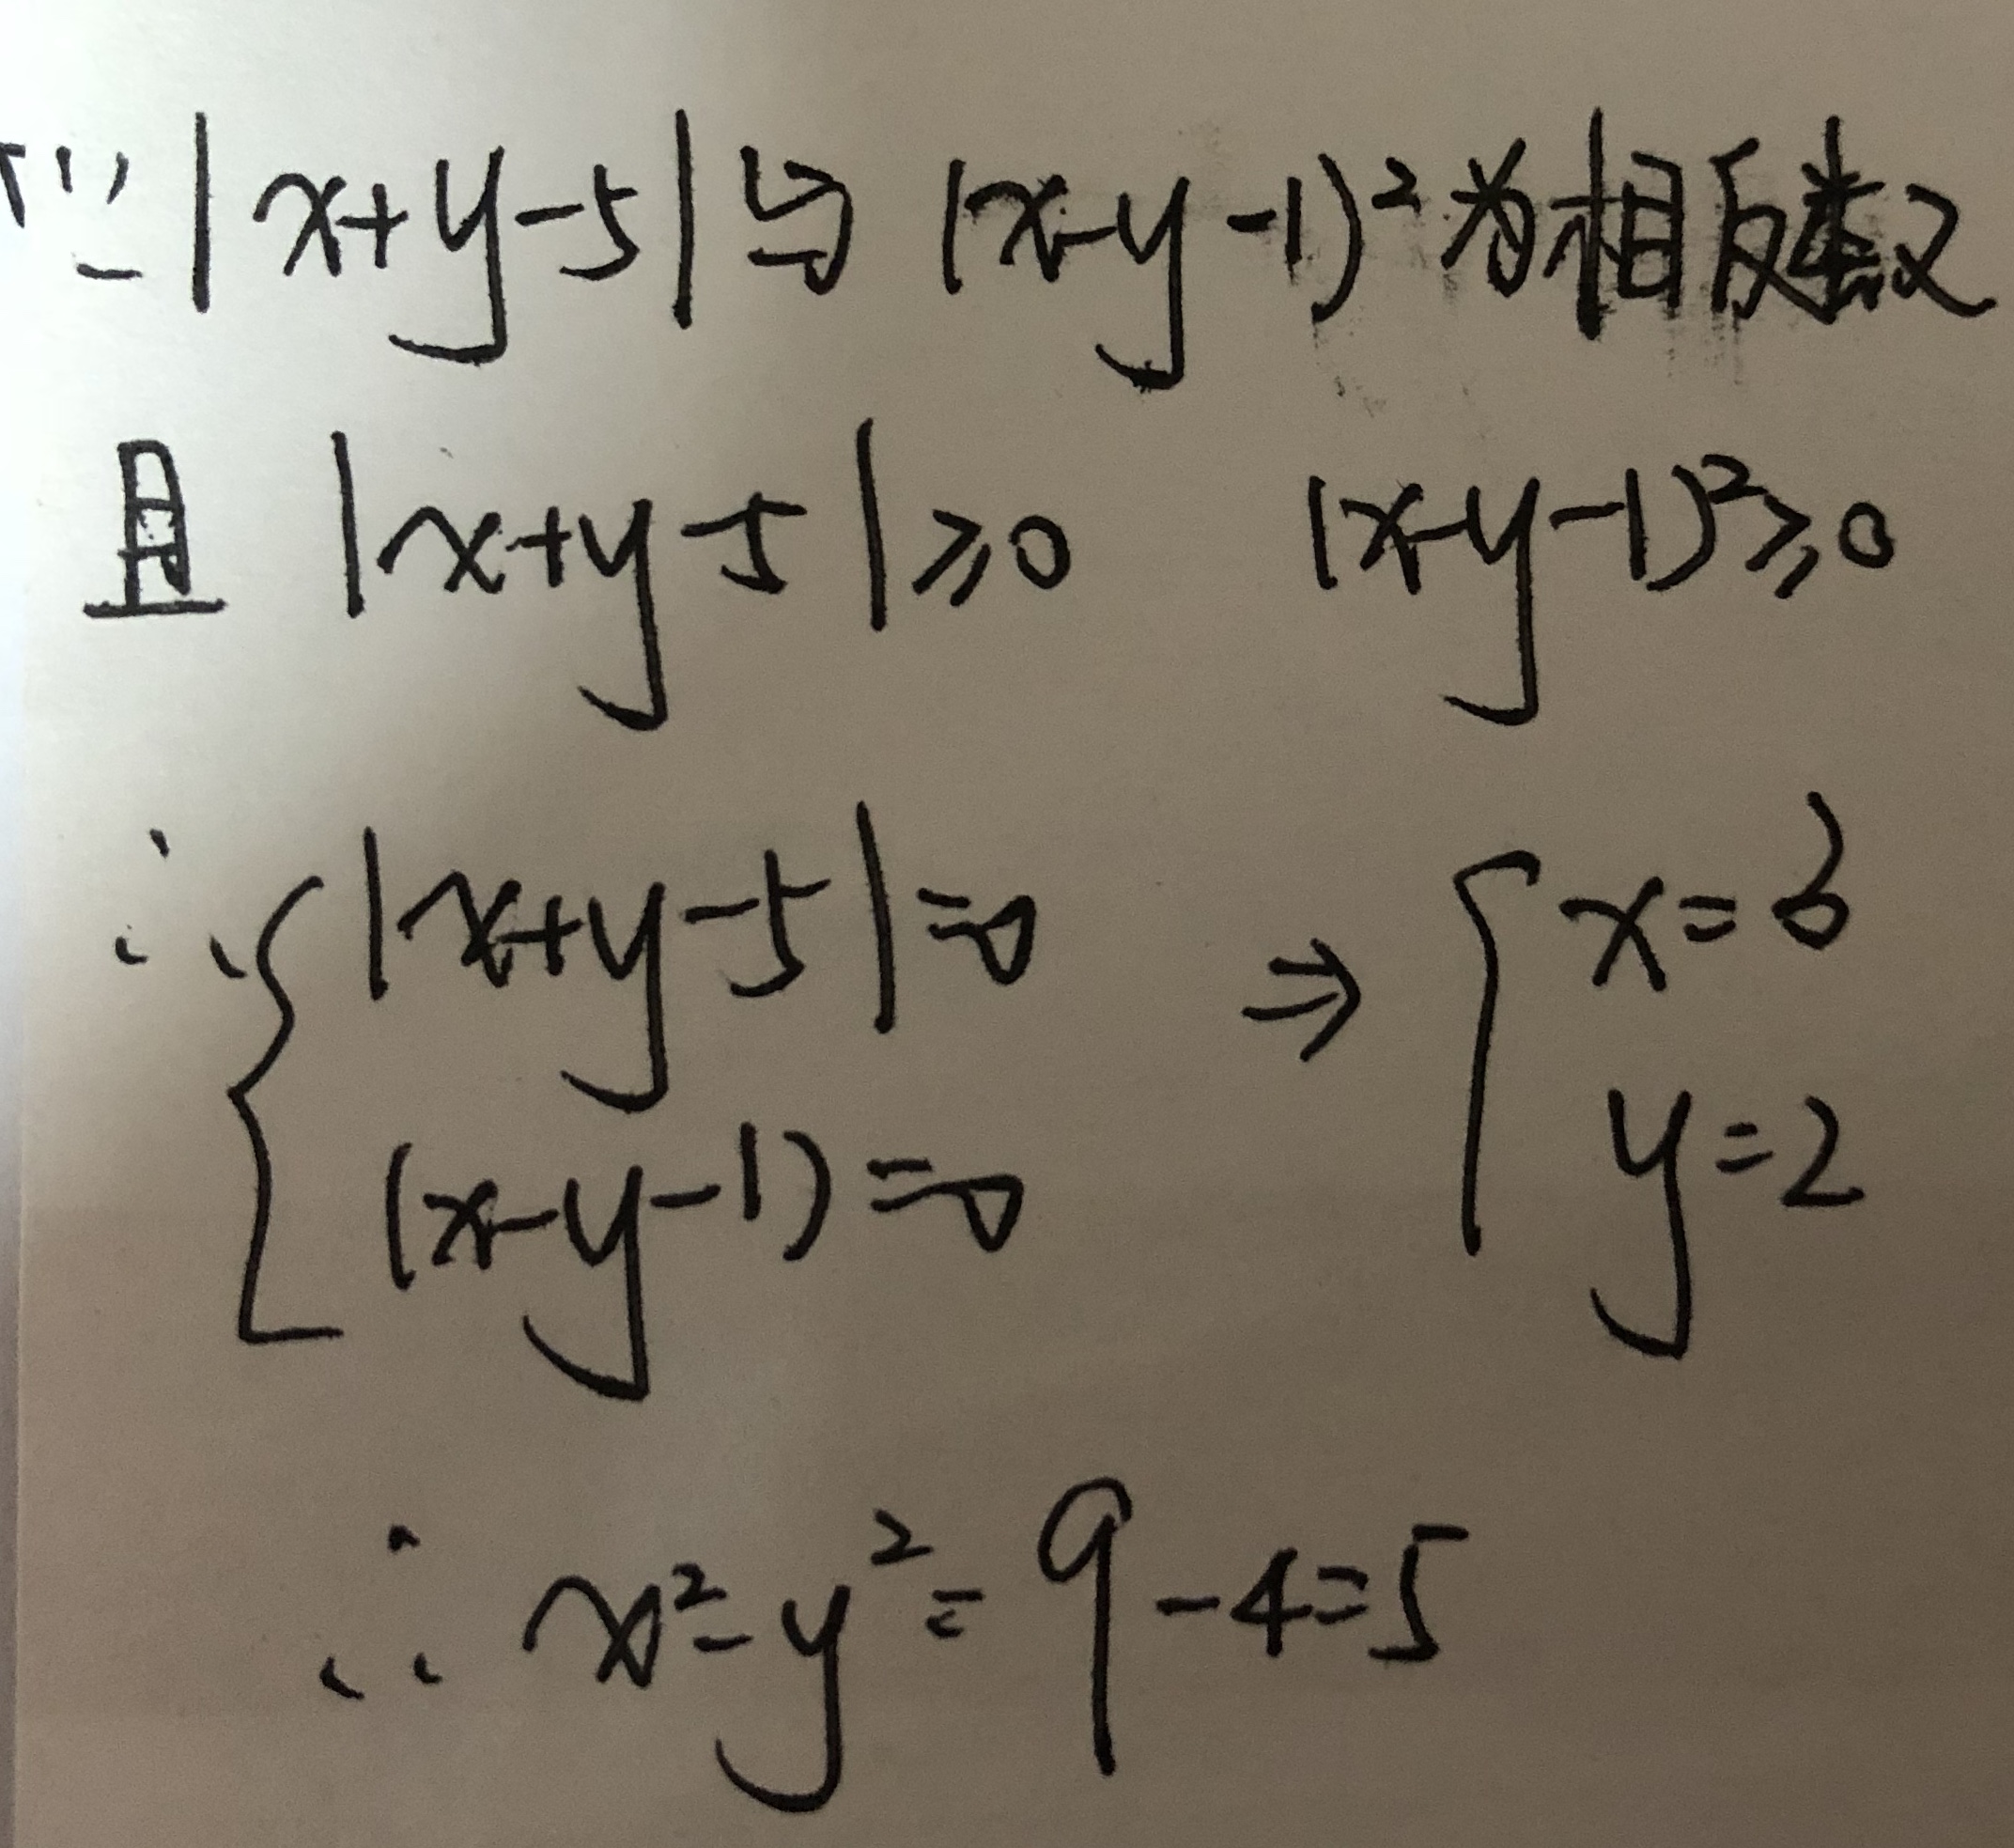 ∵ |x+y-5|与(x-y-1)²为相反数
且 |x+y-5|≥0 (x-y-1)²≥0
∴ { |x+y-5|=0 ⇒ { x=3
(x-y-1)=0 y=2
∴ x²-y²=9-4=5